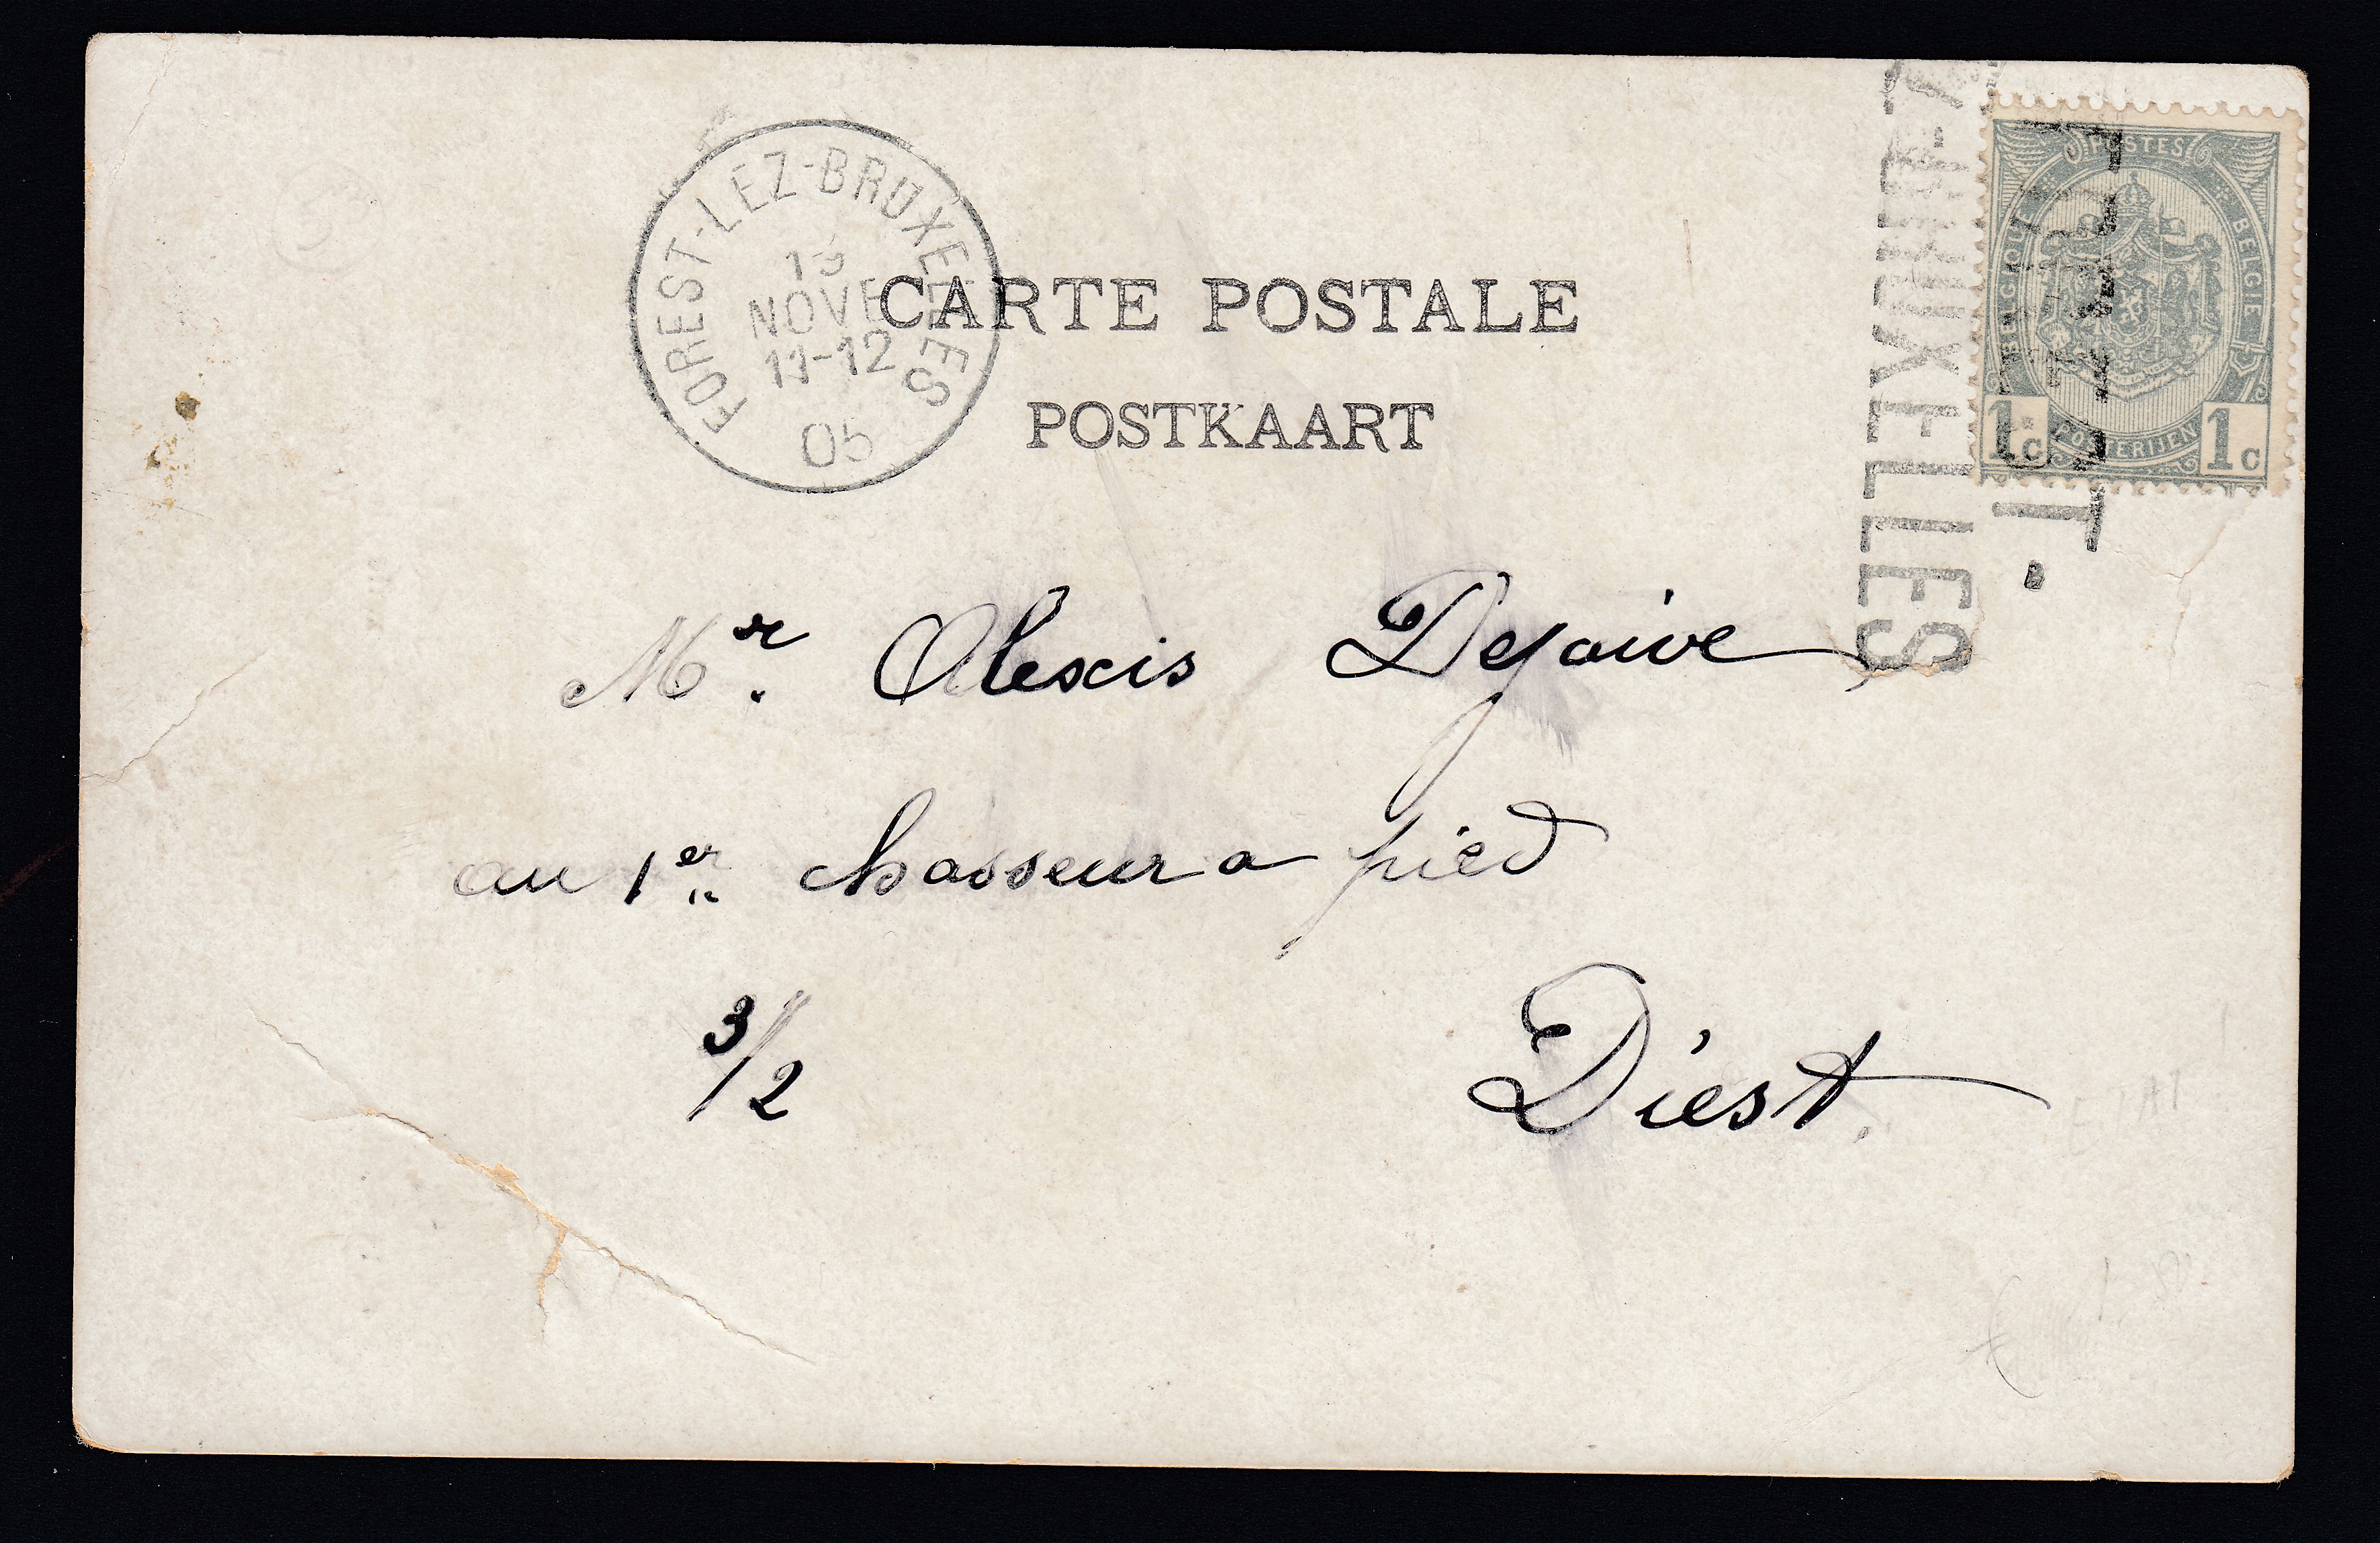 FOREST-LEZ-BRUXELLES
NOVE
11-12
05
CARTE POSTALE
POSTKAART
POSTES
BELGIQUE
BELGIE
POSTERIJEN
1c 1c
BRUXELLES
Mr. Alexis Dejaive
au 1er chasseur a pied
3/2
Diest.